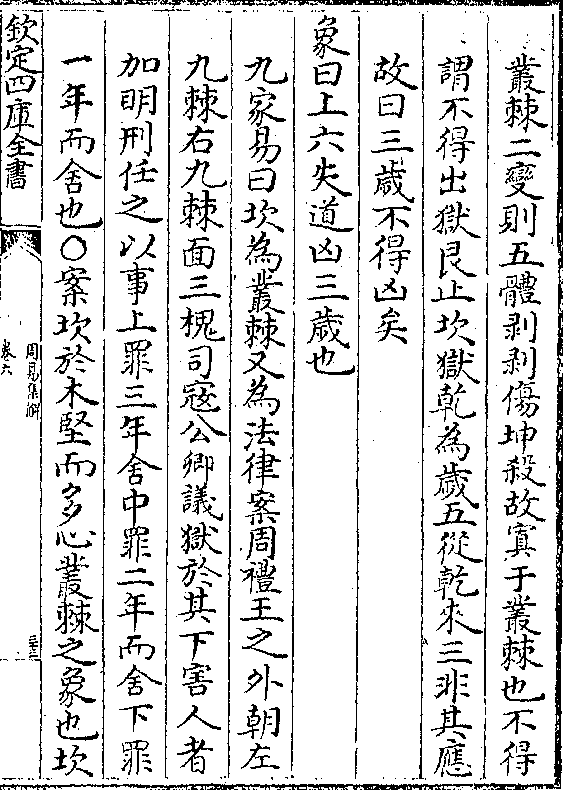 叢棘二變則五體剥剥傷坤殺故寘于叢棘也不得
謂不得出獄艮止坎獄乾為歲五從乾來三非其應
故曰三歲不得凶矣
象曰上六失道凶三歲也
九家易曰坎為叢棘又為法律案周禮王之外朝左
九棘右九棘面三槐司寇公卿議獄於其下害人者
加明刑任之以事上罪三年舍中罪二年而舍下罪
一年而舍也○案坎於木堅而多心叢棘之象也坎
欽定四庫全書
周易集解
卷六